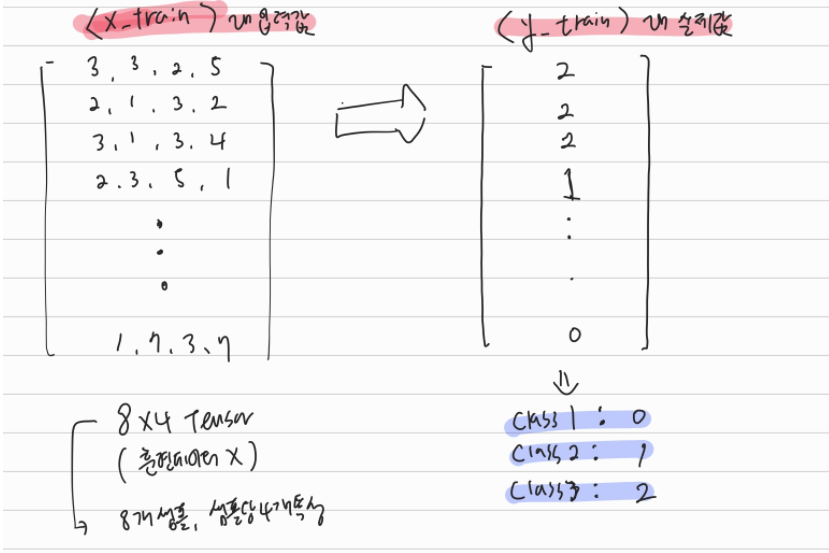 (x_train) 입력값
3, 3, 2, 5
2, 1, 3, 2
3, 1, 3, 4
2, 3, 5, 1
1, 7, 3, 7
8x4 Tensor
(훈련데이터 X)
8개 샘플, 샘플당 4개 특성
(y_train) 실제값
2
2
2
1
0
class 1 : 0
class 2 : 1
class 3 : 2